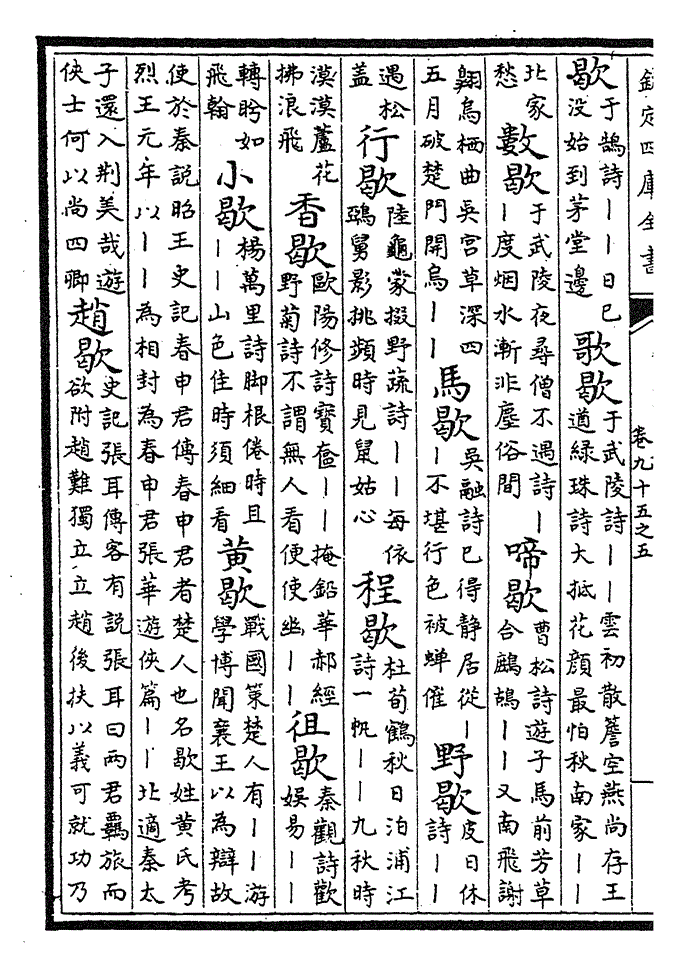 欽定四庫全書 卷九十五之五
歇于鵠詩丨丨日已没始到茅堂邊歌歇于武陵詩丨丨雲初散簷空燕尚存王遒緑珠詩大抵花顔最怕秋南家丨丨
北家愁數歇于武陵夜尋僧不遇詩丨丨度烟水漸非塵俗間啼歇曹松詩遊子馬前芳草合鷓鴣丨丨又南飛謝
翺烏栖曲吳宮草深四五月破楚門開烏丨丨馬歇吳融詩已得静居從丨丨不堪行色被蟬催野歇皮日休詩丨丨
遇松蓋行歇陸龜蒙掇野蔬詩丨丨每依鵶舅影挑頻時見鼠姑心程歇杜荀鶴秋日泊浦江詩一帆丨丨九秋時
漠漠蘆花拂浪飛香歇歐陽修詩寶奩丨丨掩鉛華郝經野菊詩不謂無人看便使幽丨丨徂歇秦觀詩歡娛易丨丨
轉盻如飛翰小歇楊萬里詩脚根倦時且丨丨山色佳時須細看黄歇戰國策楚人有丨丨游學博聞襄王以為辯故
使於秦説昭王史記春申君傳春申君者楚人也名歇姓黄氏考烈王元年以丨丨為相封為春申君張華遊俠篇丨丨北適秦太
子還入荆美哉遊俠士何以尚四卿趙歇史記張耳傳客有説張耳曰兩君羈旅而欲附趙難獨立立趙後扶以義可就功乃